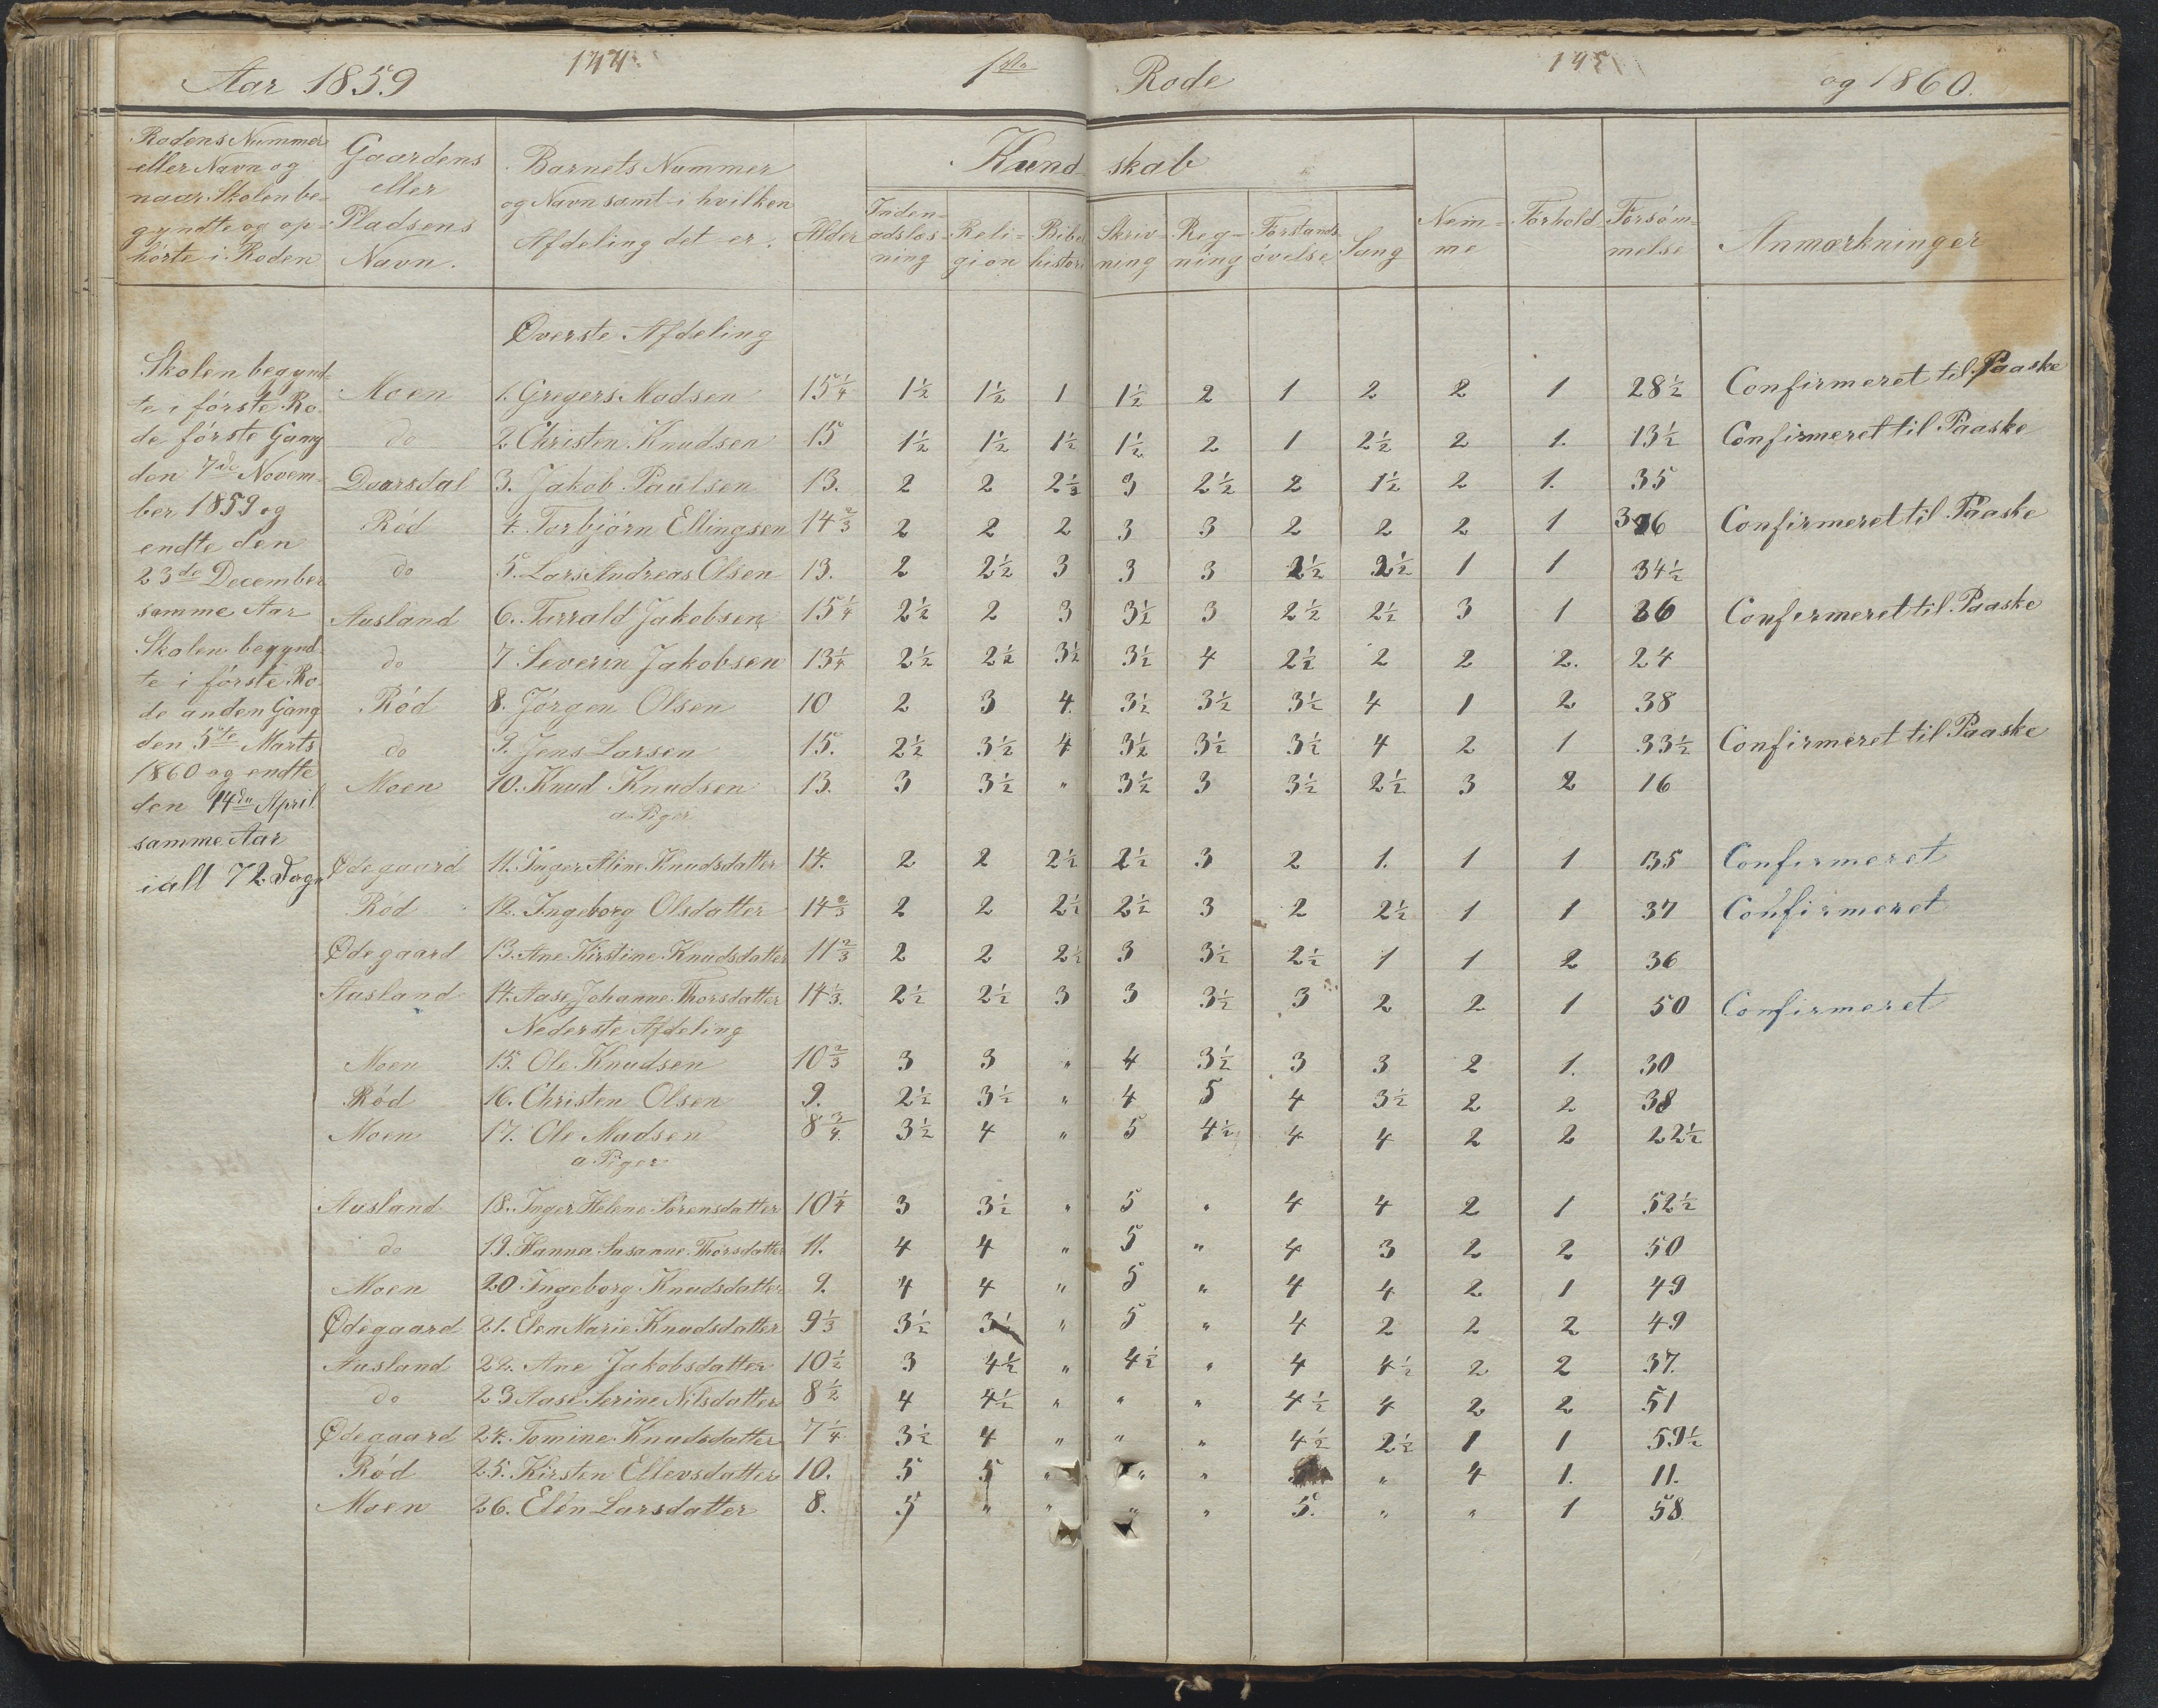 144. 145
Aar 1859 1ste Rode og 1860.
Rodens Nummer eller Navn og naar Skolen begyndte og ophörte i Roden
Gaardens eller Pladsens Navn.
Barnets Nummer og Navn samt i hvilken Afdeling det er.
Alder
Kundskab
Indenadslæsning
Religion
Bibelhistorie
Skrivning
Regning
Forstandsövelse
Sang
Nemme
Forhold
Forsømmelse
Anmærkninger
Skolen begynd-
te i förste Ro-
de förste Gang
den 7de Novem-
ber 1859 og
endte den
23de December
samme Aar
Skolen begynd-
te i förste Ro-
de anden Gang
den 5te Marts
1860 og endte
den 14de April
samme Aar
ialt 72 Dage
Øverste Afdeling
Moen 1. Gregers Madsen 15 1/4 1 1/2 1 1/2 1 1 1/2 2 1 2 2 1 28 1/2 Confirmeret til Paaske
do 2. Christen Knudsen 15 1 1/2 1 1/2 1 1/2 1 1/2 2 1 2 1/2 2 1. 13 1/2 Confirmeret til Paaske
Daarsdal 3. Jakob Paulsen 13. 2 2 2 1/3 3 2 1/2 2 1 1/2 2 1. 35
Röd 4. Torbjörn Ellingsen 14 2/3 2 2 2 3 3 2 2 2 1 36 Confirmeret til Paaske
do 5. Lars Andreas Olsen 13. 2 2 1/2 3 3 3 2 1/2 2 1/2 1 1 34 1/2
Ausland 6. Tarrald Jakobsen 15 1/4 2 1/2 2 3 3 1/2 3 2 1/2 2 1/2 3 1 26 Confirmeret til Paaske
do 7 Severin Jakobsen 13 1/4 2 1/2 2 1/2 3 1/2 3 1/2 4 2 1/2 2 2 2. 24
Röd 8. Jörgen Olsen 10 2 3 4. 3 1/2 3 1/2 3 1/2 4 1 2 38
do 9. Jens Larsen 15. 2 1/2 3 1/2 4 3 1/2 3 1/2 3 1/2 4 2 1 33 1/2 Confirmeret til Paaske
Moen 10. Knud Knudsen 13. 3 3 1/2 " 3 1/2 3 3 1/2 2 1/2 3 2 16
a. Piger
Ødegaard 11. Inger Aline Knudsdatter 14. 2 2 2 1/2 2 1/2 3 2 1. 1 1 35 Confirmeret
Röd 12. Ingeborg Olsdatter 14 2/3 2 2 2 1/2 2 1/2 3 2 2 1/2 1 1 37 Confirmeret
Ødegaard 13. Ane Kirstine Knudsdatter 11 2/3 2 2 2 1/2 3 3 1/2 2 1/2 1 1 2 36
Ausland 14. Aase Johanne Thorsdatter 14 1/3. 2 1/2 2 1/2 3 3 3 1/2 3 2 2 1 50 Confirmeret
Nederste Afdeling
Moen 15. Ole Knudsen 10 2/3 3 3 " 4 3 1/2 3 3 2 1. 30
Röd 16. Christen Olsen 9. 2 1/2 3 1/2 " 4 5 4 3 1/2 2 2 38
Moen 17. Ole Madsen 8 3/4. 3 1/2 4 " 5 4 1/2 4 4 2 2 22 1/2
a. Piger
Ausland 18. Inger Helene Sörensdatter 10 1/4 3 3 1/2 " 5 " 4 4 2 1 52 1/2
do 19. Hanna Susanne Thorsdatter 11. 4 4 " 5 " 4 3 2 2 50
Moen 20 Ingeborg Knudsdatter 9. 4 4 " 5 " 4 4 2 1 49
Ødegaard 21. Elen Marie Knudsdatter 9 1/3 3 1/2 3 1/2 " 5 " 4 2 2 2 49
Ausland 22. Ane Jakobsdatter 10 1/2 3 4 1/2 " 4 1/2 " 4 4 1/2 2 2 37.
do 23 Aase Serine Nilsdatter 8 1/2 4 4 1/2 " " " 4 1/2 4 2 2 51
Ødegaard 24. Tomine Knudsdatter 7 1/4 3 1/2 4 " " " 4 1/2 2 1/2 1 1 59 1/2
Röd 25. Kirsten Ellevsdatter 10. 5 5 " " " " 4 1. 11.
Moen 26. Elen Larsdatter 8. 5 " " " " 5. " " 1 58